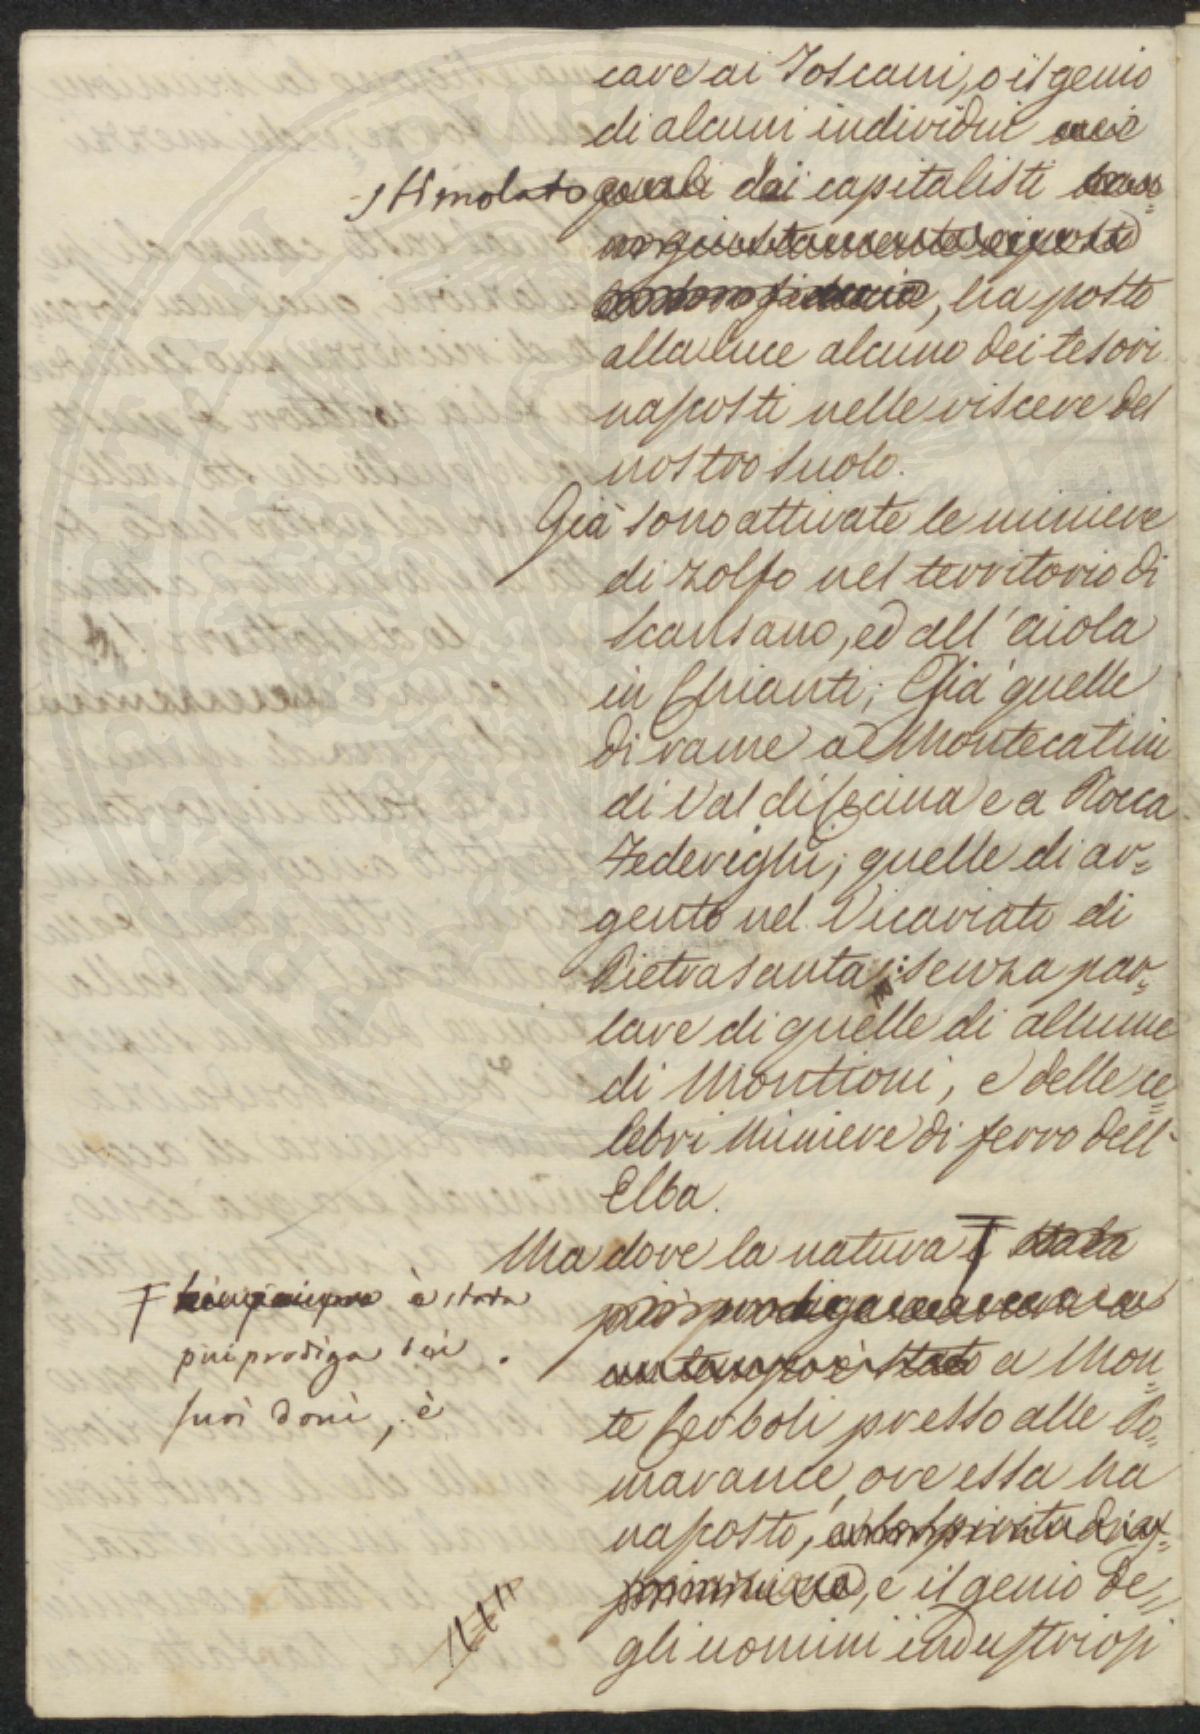 cave ai Toscani, o il genio
di alcuni individui nei
stimolato quali dai capitalisti
, ha posto
alla luce alcuno dei tesori
nascosti nelle viscere del
nostro suolo.
Già sono attivate le miniere
di zolfo nel territorio di
Scansano, ed all'aiola
in Chianti; Già quelle
di rame a Montecatini
di Val di Cecina e a Rocca
Federighi; quelle di ar=
gento nel Vicariato di
Pietrasanta; senza par=
lare di quelle di allume
di Montioni, e delle ce=
lebri miniere di ferro dell'
Elba.
Ma dove la natura è stata
è stata
più prodiga dei
suoi doni, è
più prodiga
è stato a Mon=
te Cerboli presso alle Po=
marance, ove essa ha
nascosto,
, e il genio de=
gli uomini industriosi